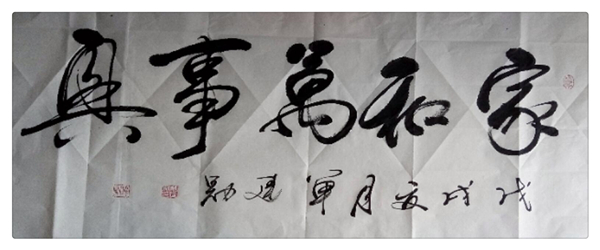 家和萬事興
戊戌夏月軍